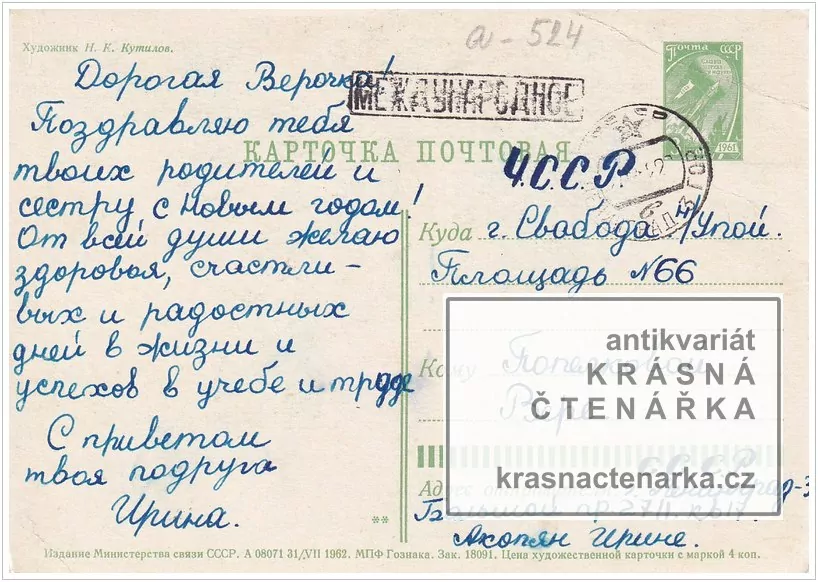 а - 524
Художник Н. К. Кутилов.
Почта СССР
1961
МЕЖДУНАРОДНОЕ
КАРТОЧКА ПОЧТОВАЯ
Дорогая Верочка!
Поздравляю тебя
твоих родителей и
сестру с Новым годом!
От всей души желаю
здоровья, счастли-
вых и радостных
дней в жизни и
успехов в учебе и труде
С приветом
твоя подруга
Ирина.
Ч.С.С.Р
Куда г. Свабода н/Упой.
Площадь N 66
Кому
Вере
antikvariát
KRÁSNÁ
ČTENÁŘKA
krasnactenarka.cz
СССР
Адрес
пр. 27
Акопян Ирине.
**
Издание Министерства связи СССР. А 08071 31/VII 1962. МПФ Гознака. Зак. 18091. Цена художественной карточки с маркой 4 коп.